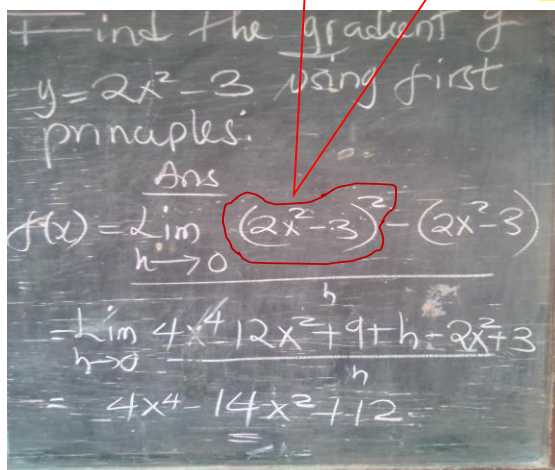 Find the gradient of
y = 2x² - 3 using first
principles.
Ans
f(x) = Lim (2x² - 3)² - (2x² - 3)
h→0
h
= Lim 4x⁴ 12x² + 9 + h - 2x² + 3
h→0
h
= 4x⁴ - 14x² + 12